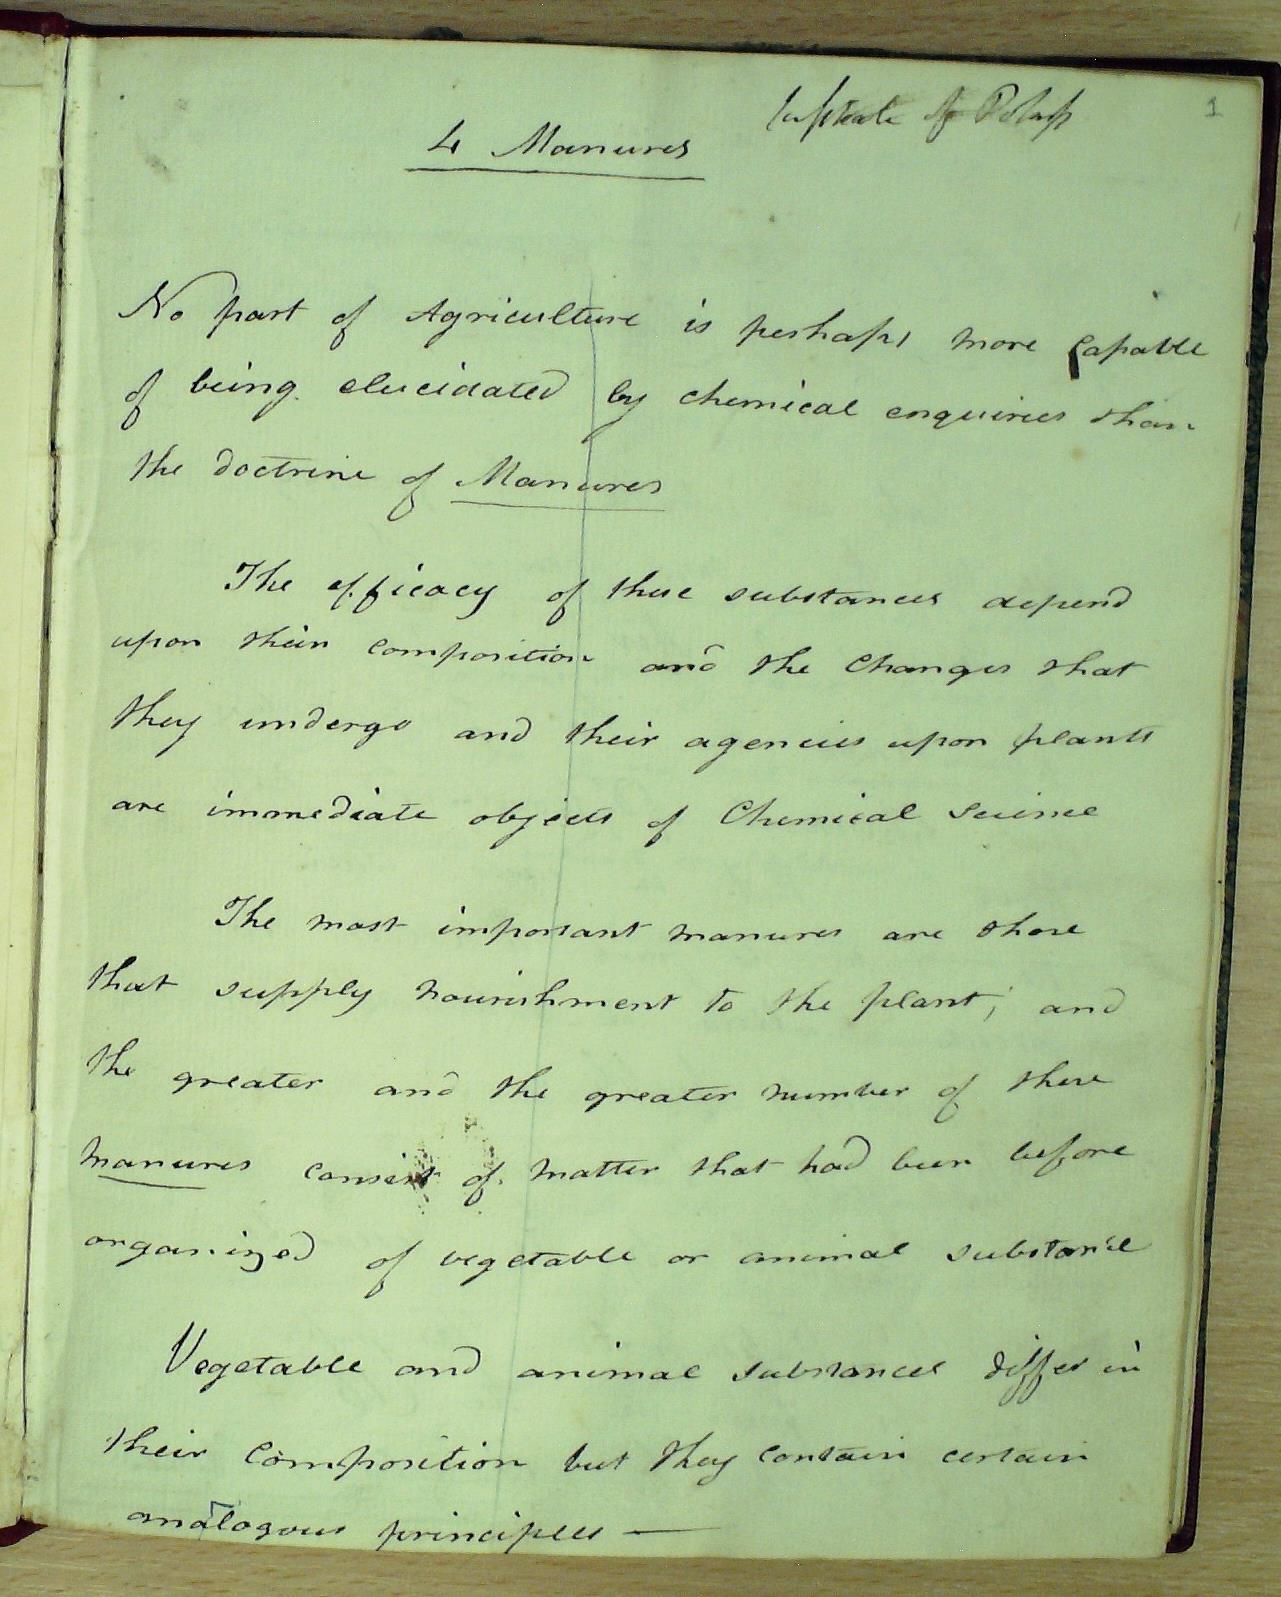 of Potash
1
4 Manures
No part of Agriculture is perhaps more capable
of being elucidated by chemical enquiries than
the doctrine of Manures
The efficacy of these substances depend
upon their composition and the changes that
they undergo and their agencies upon plants
are immediate objects of Chemical Science
The most important manures are those
that supply nourishment to the plant; and
the greater and the greater number of these
manures consist of matter that had been before
organized of vegetable or animal substance
Vegetable and animal substances differ in
their composition but they contain certain
analogous principles —